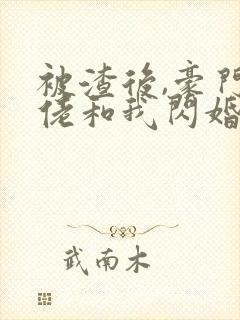 被渣後,豪門
佬和我閃婚
武南木